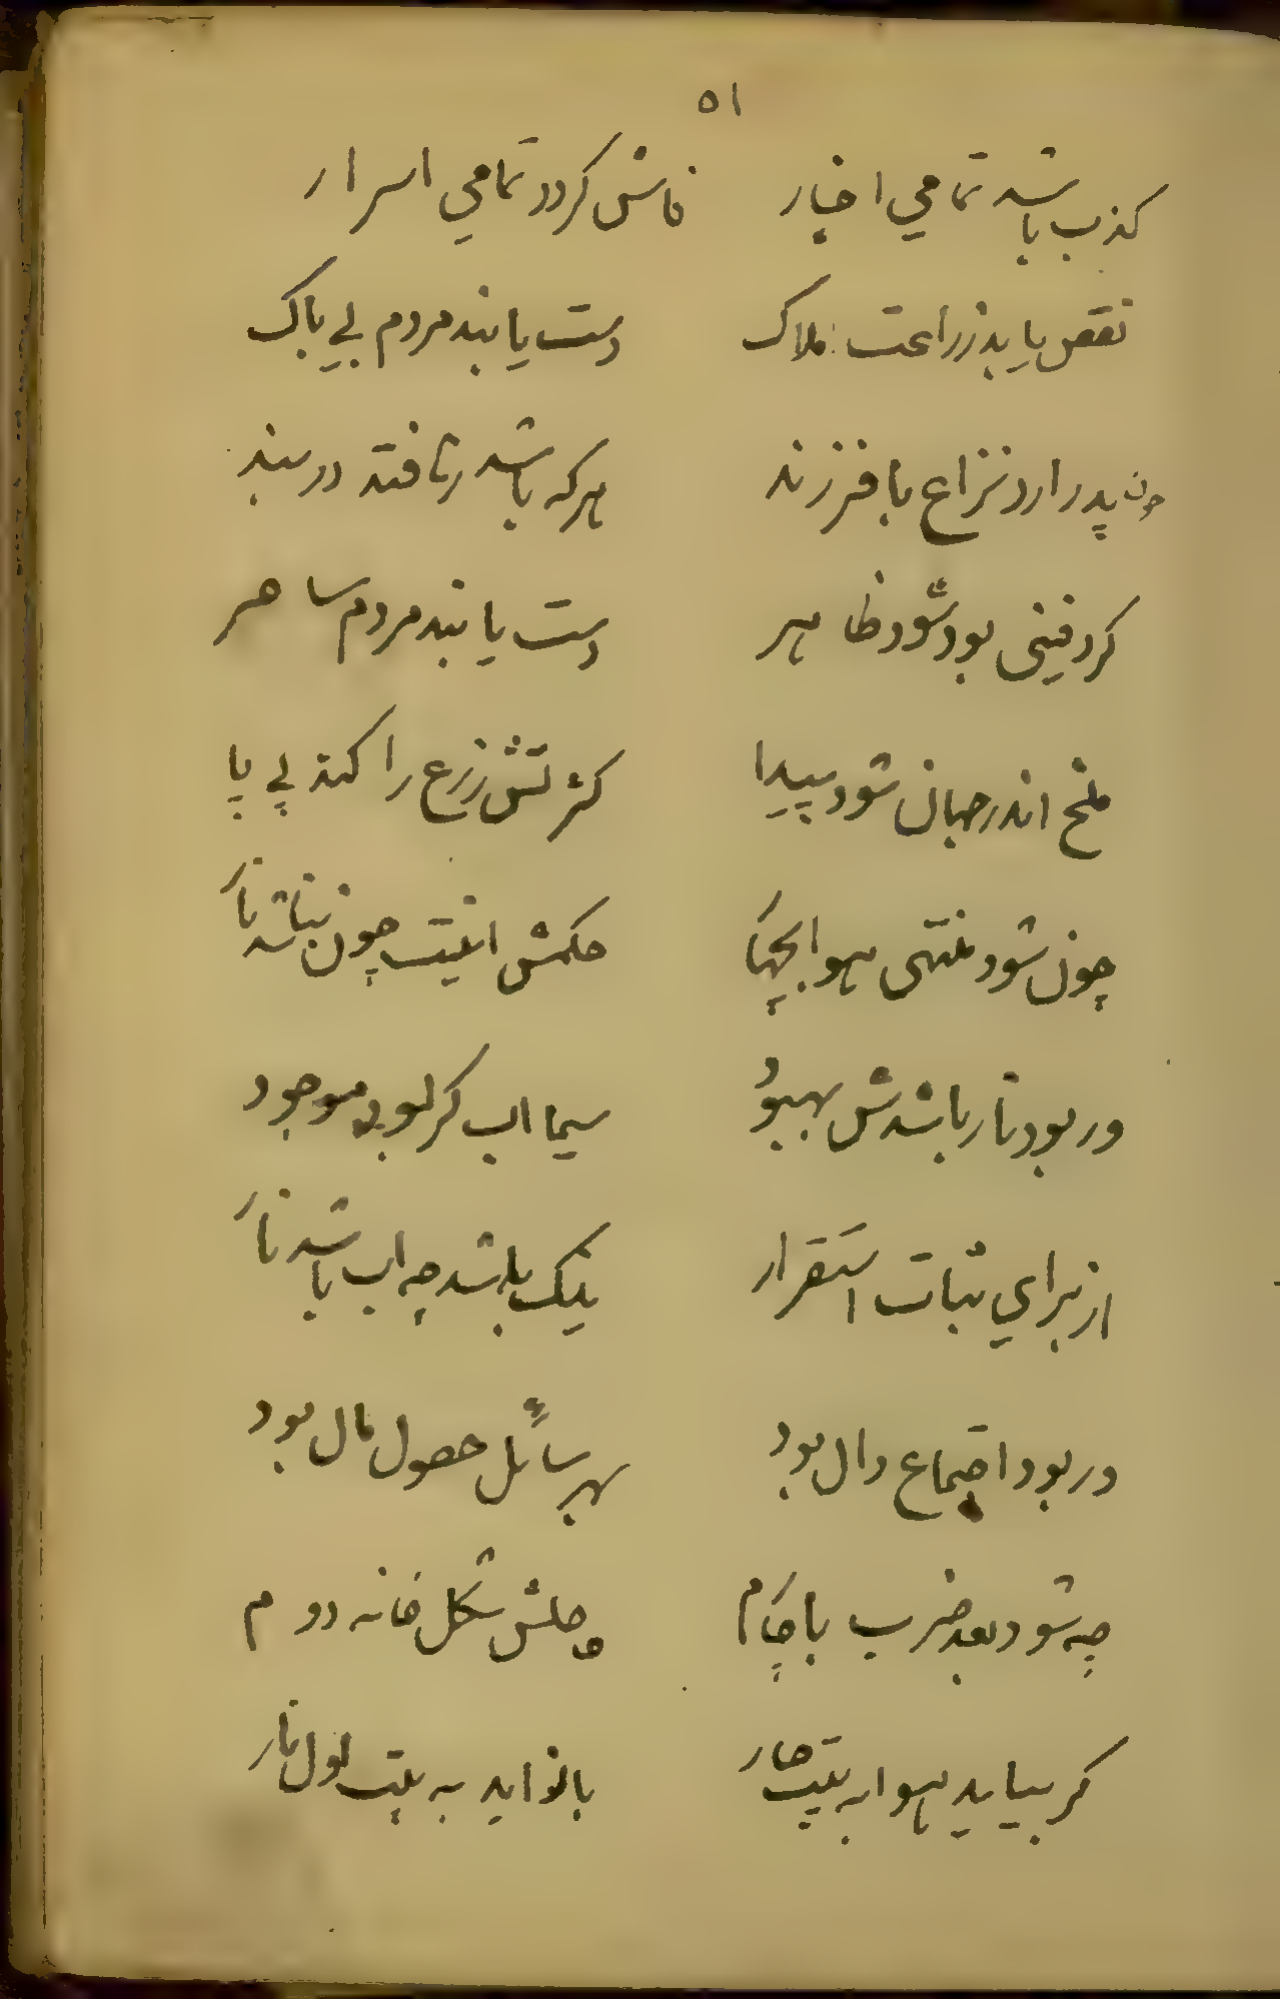 ۵۱
کذب باشد تمامي اخبار فاش کردد تمامي اسرار
نقص یابد زراعت املاک دست یابند مردم بے باک
چون پدر دارد نزاع با فرزند هرکه باشد رود در بند
کر دفینی بود شود ظاهر دست یابند مردم ساحر
ملخ اندر جهان شود پیدا کثرتش زرع را کند بے پا
چون شود منتهی هوا بجهار حکمش اینست چون بیاشد نار
ور بود نار باشدش بهبود سیما اب کر بود موجود
از برای ثبات استقرار نیک باشد چه اب باشد نار
ور بود اجتماع دال بود بهر سائل حصول مال بود
چه شود بعد ضرب با چارم حاصلش شکل خانه دوم
کر بیاید هوا به بیت چار به بیت اول نار